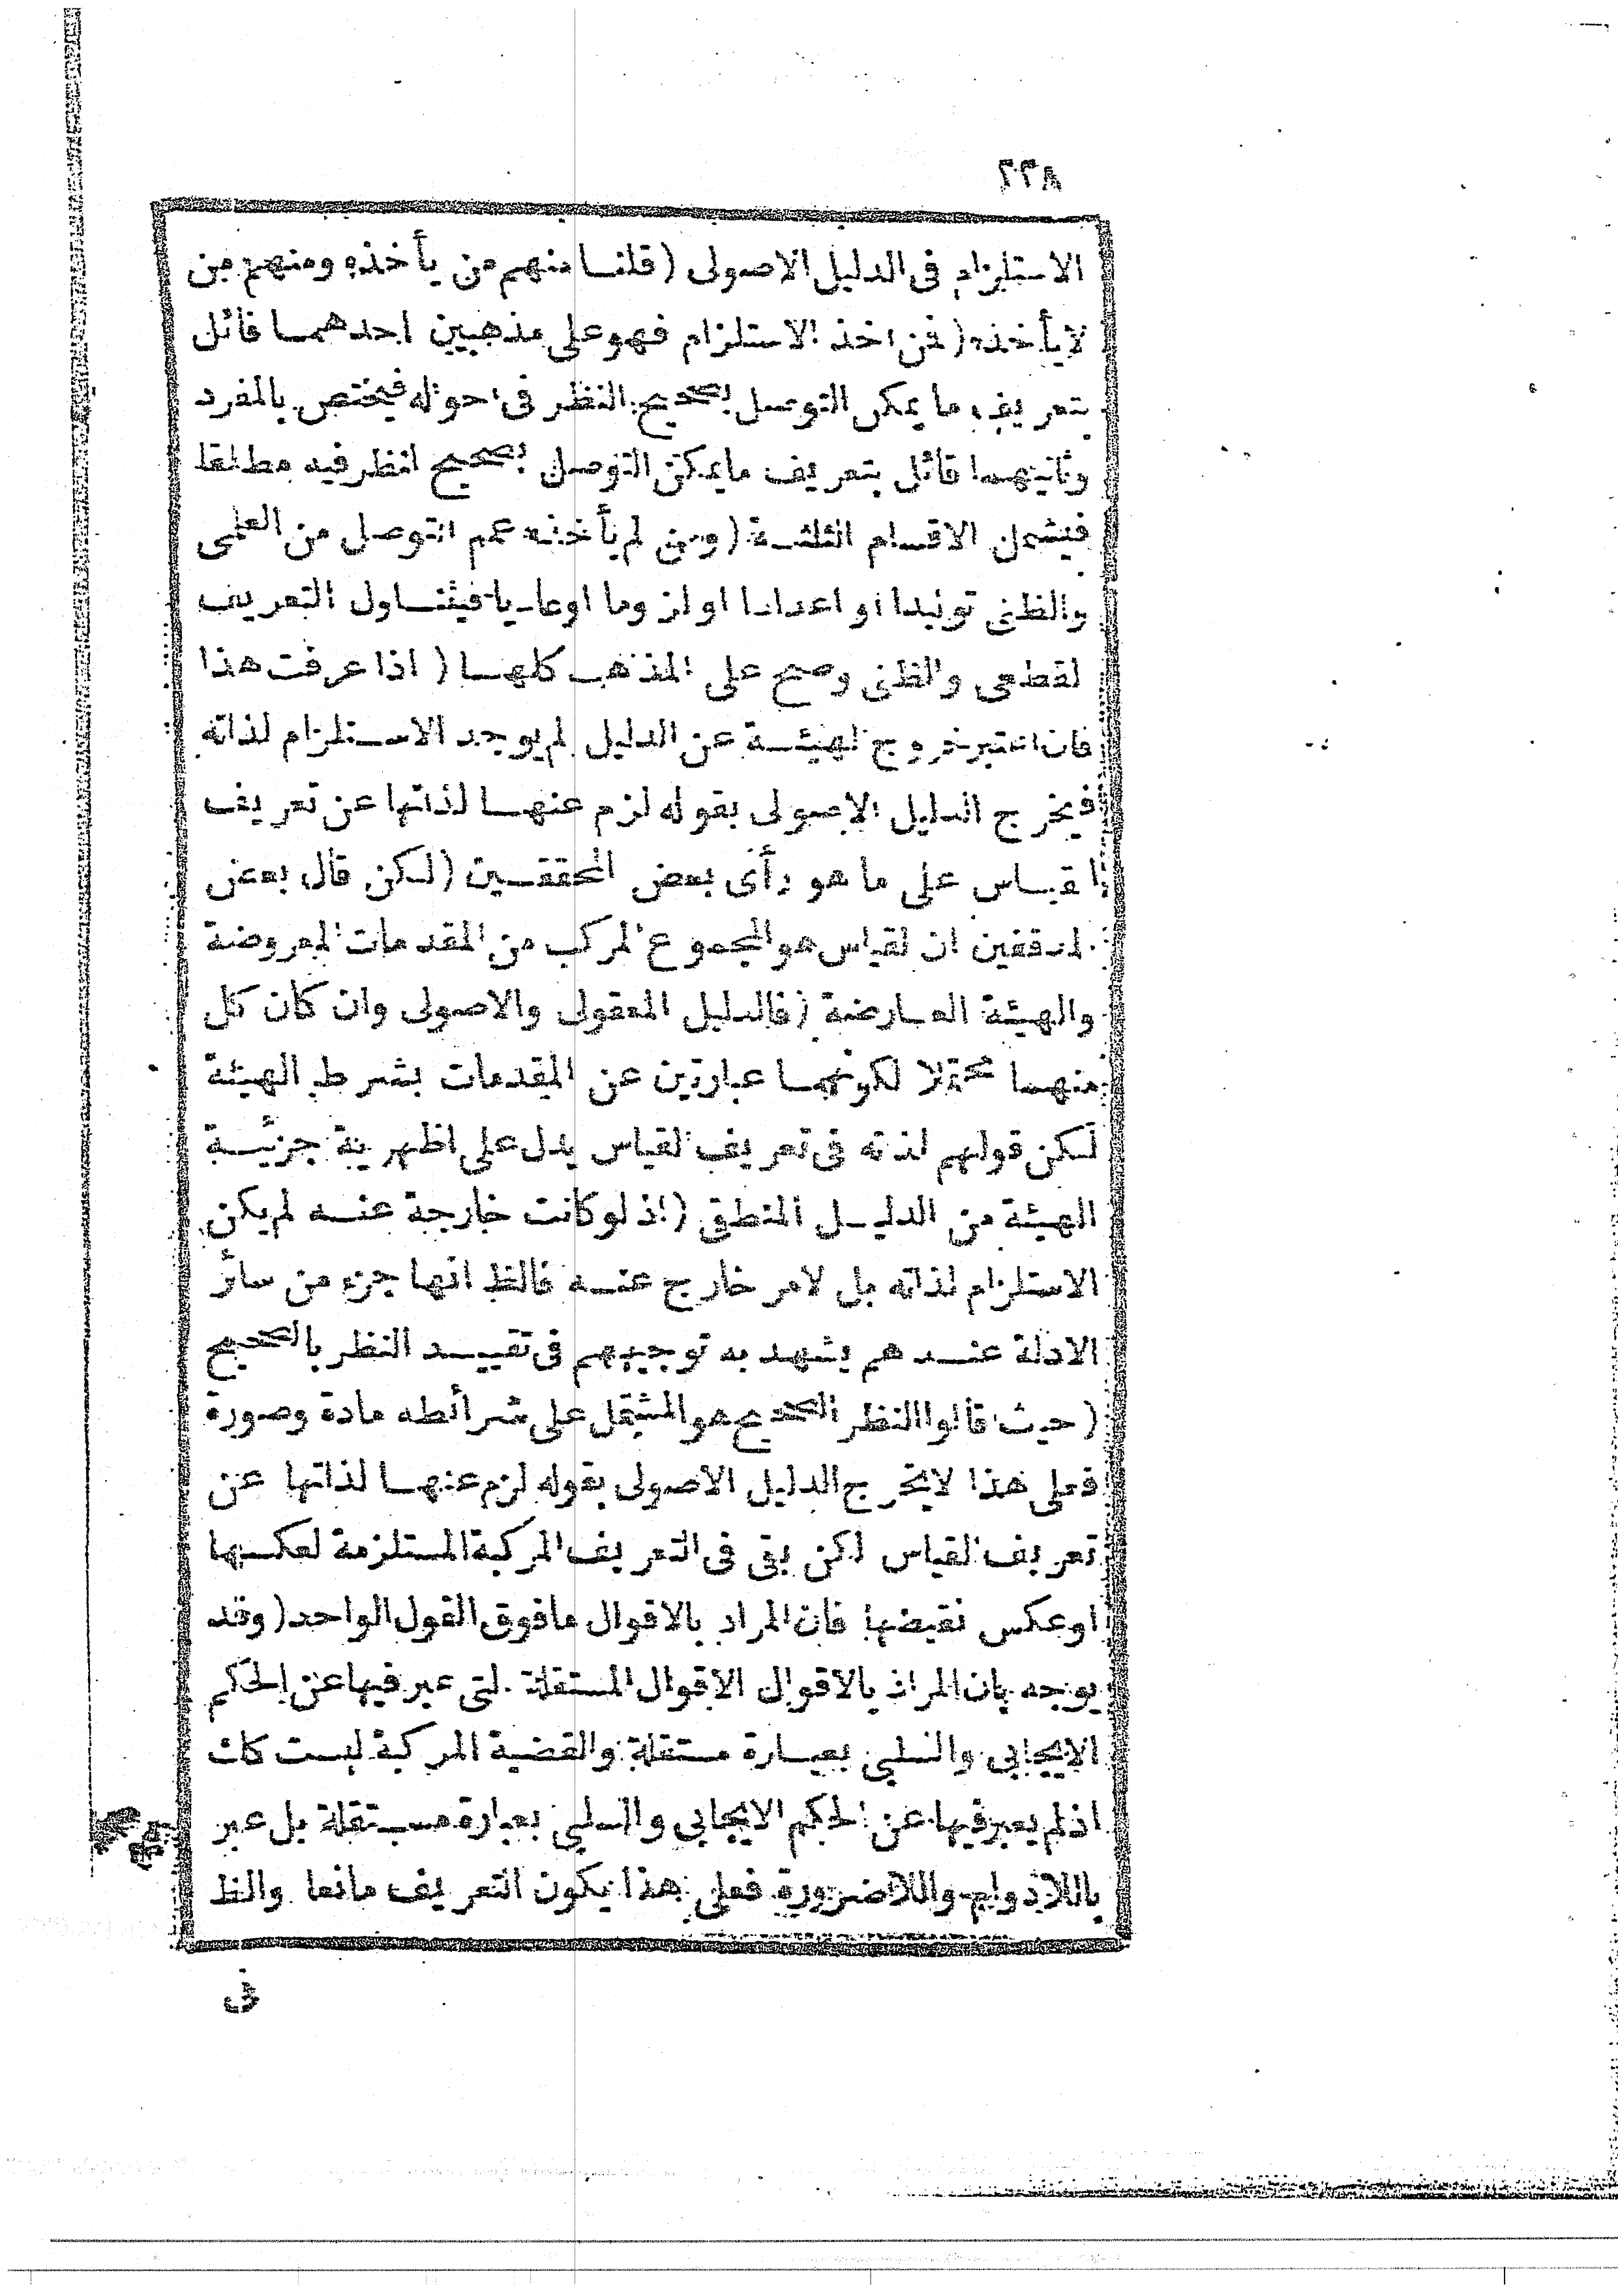 ٢٣٨
الاستلزام فى الدليل الاصولى (قلنا منهم من يأخذه ومنهم من
لا يأخذه (فمن اخذ الاستلزام فهو على مذهبين احدهما قائل
بتعريف ما يمكن التوصل بصحيح النظر فى احواله فيختص بالمفرد
وثانيهما قائل بتعريف ما يمكن التوصل بصحيح النظر فيه مطلقا
فيشمل الاقسام الثلثة (ومن لم يأخذه عمم التوصل من العلمى
والظنى توليدا او اعدادا او لزوما او عاديا فيتناول التعريف
لقطعى والظنى وصح على المذهب كلها (اذا عرفت هذا
فان اعتبر خروج الهيئة عن الدليل لم يوجد الاستلزام لذاته
فيخرج الدليل الاصولى بقوله لزم عنها لذاتها عن تعريف
القياس على ما هو رأى بعض المحققين (لكن قال بعض
المدققين ان القياس هو المجموع المركب من المقدمات المعروضة
والهيئة العارضة (فالدليل المعقولى والاصولى وان كان كل
منهما محتملا لكونهما عبارتين عن المقدمات بشرط الهيئة
لكن قولهم لذاته فى تعريف القياس يدل على اظهرية جزئية
الهيئة من الدليل المنطقى (اذ لو كانت خارجة عنه لم يكن
الاستلزام لذاته بل لامر خارج عنه فالظ انها جزء من سائر
الادلة عندهم يشهد به توجيههم فى تقييد النظر بالصحيح
(حيث قالوا النظر الصحيح هو المشتمل على شرائطه مادة وصورة
فعلى هذا لا يخرج الدليل الاصولى بقوله لزم عنها لذاتها عن
تعريف القياس لكن بقى فى التعريف المركبة المستلزمة لعكسها
او عكس نقيضها فان المراد بالاقوال ما فوق القول الواحد (وقد
يوجه بان المراد بالاقوال الاقوال المستقلة التى عبر فيها عن الحكم
الايجابى والسلبى بعبارة مستقلة والقضية المركبة ليست كك
اذ لم يعبر فيها عن الحكم الايجابى والسلبى بعبارة مستقلة بل عبر
باللادوام واللاضرورة فعلى هذا يكون التعريف مانعا والظ
فى